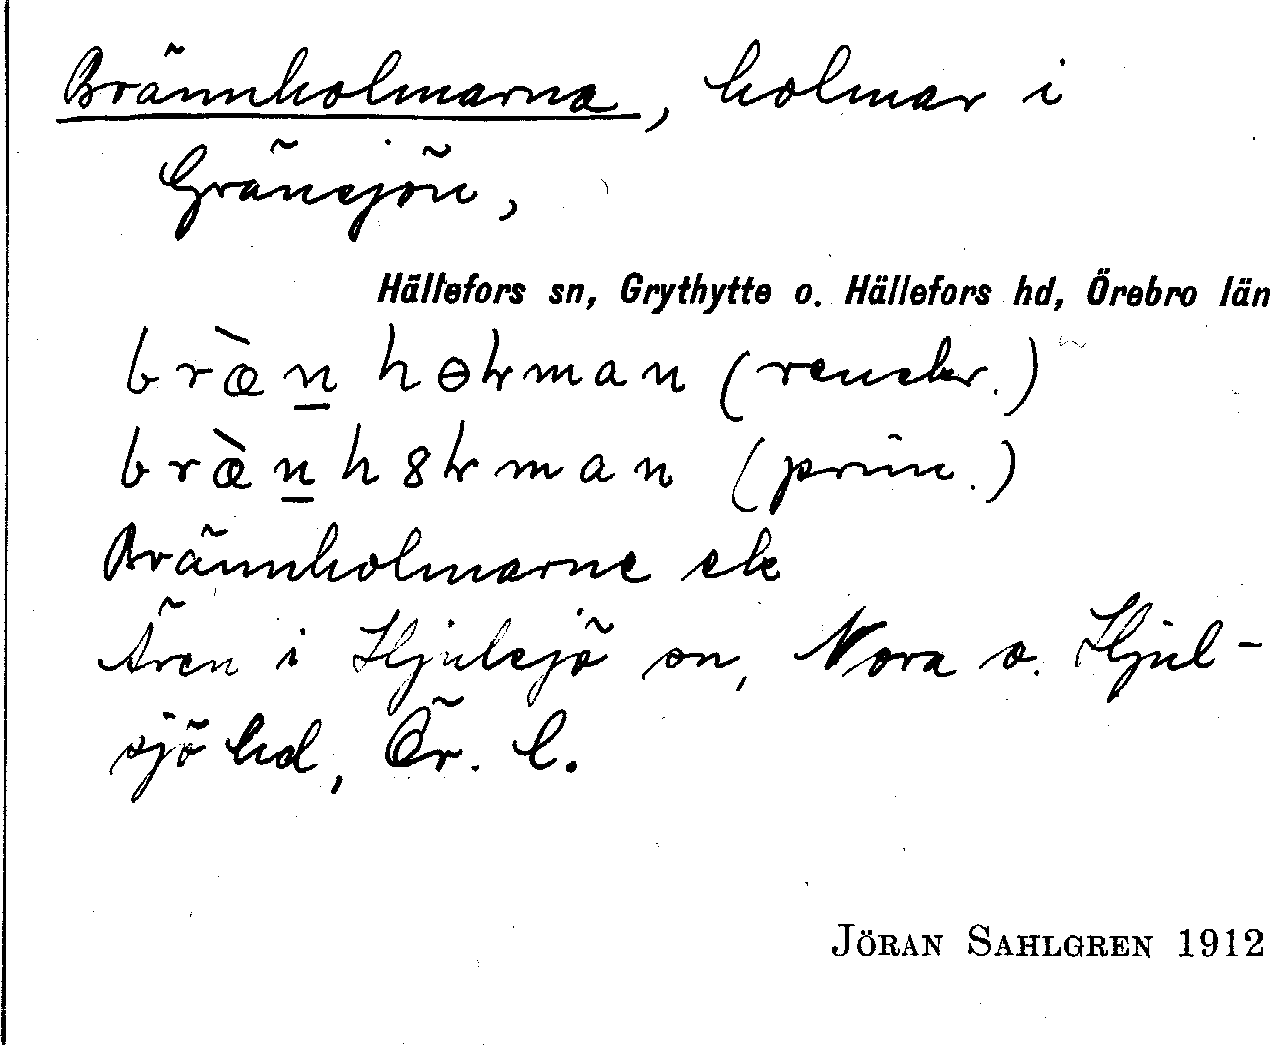 Brännholmarna, holmar i
Gränsjön,
Hällefors sn, Grythytte o. Hällefors hd, Örebro län
bræ̀n̲hɵɫman (renskr.)
bræ̀n̲h8ɫman (prim.)
Brännholmarne ek
Ären i Hjulsjö sn, Nora o. Hjul-
sjö hd, Ör. l.
JÖRAN SAHLGREN 1912